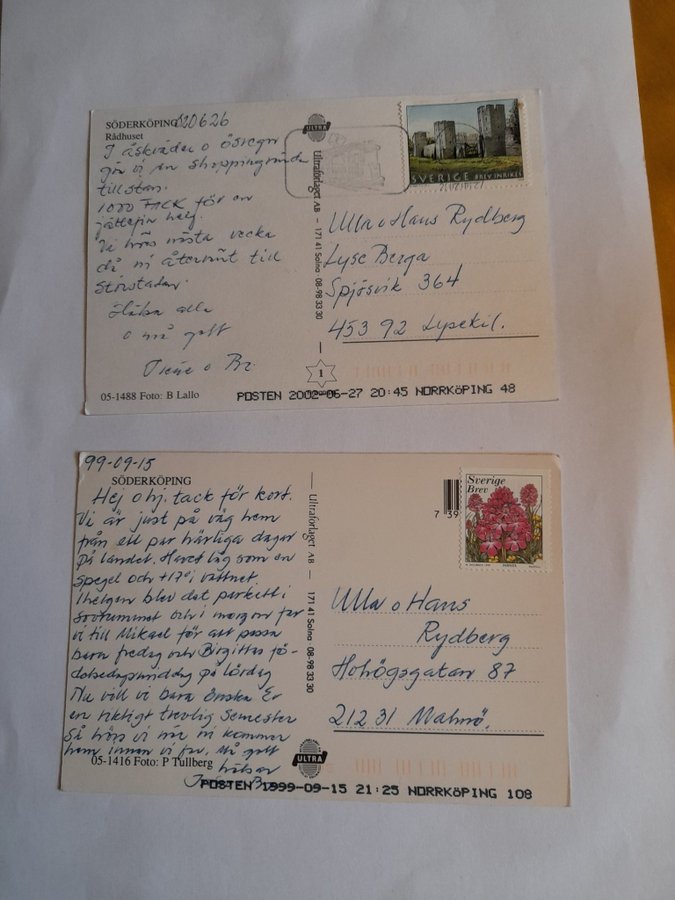 SÖDERKÖPING 020626
Rådhuset
I åskväder o ösregn
gör vi en shoppingrunda
till stan.
1000 TACK för en
jättefin helg.
Vi hörs nästa vecka
då ni återvänt till
storstaden.
Hälsa alla
o må gott
05-1488 Foto: B Lallo
ULTRA
Ultraförlaget AB - 171 41 Solna 08-98 33 30
SVERIGE BREV INRIKES
Ulla o Hans Rydberg
Lyse Berga
Spjösvik 364
453 92 Lysekil.
1
POSTEN 2002-06-27 20:45 NORRKÖPING 48
99-09-15
SÖDERKÖPING
Hej o hj. tack för kort.
Vi är just på väg hem
från ett par härliga dagar
på landet. Havet låg som en
spegel och +17° i vattnet.
I helgen blev det parkett i
sovrummet och i morgon far
vi till Mikael för att passa
barn fredag och Birgittas fö-
delsedagsmiddag på lördag
Nu vill vi bara önska Er
en riktigt trevlig semester
så hörs vi när ni kommer
hem innan vi far. Må gott
hälsar
05-1416 Foto: P Tullberg
Ultraförlaget AB - 171 41 Solna 08-98 33 30
ULTRA
7 39
Sverige
Brev
Ulla o Hans
Rydberg
Hohögsgatan 87
212 31 Malmö.
POSTEN 1999-09-15 21:25 NORRKÖPING 108